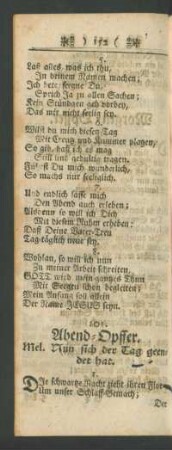 ) 152 (
5.
Laß alles, was ich thu,
In deinem Namen machen;
Ich bete, seegne Du,
Sprich Ja zu allen Sachen;
Kein Stündgen geh vorbey,
Das mir nicht seelig sey.
6.
Willt du mich diesen Tag
Mit Creutz und Kummer plagen,
So gib, daß ich es mag
Still und gedultig tragen.
Du mich wunderlich,
So machs nur seeliglich.
7.
Und endlich lasse mich
Den Abend auch erleben;
Alsdenn so will ich Dich
Mit diesem Ruhm erheben:
Daß Deine Vater-Treu
Tag täglich neue sey.
8.
Wohlan, so will ich nun
Zu meiner Arbeit schreiten,
GOTT wird mein gantzes Thun
Mit Seegen schon begleiten;
Mein Anfang soll allein
Der Name JESUS seyn.
101.
Abend-Opffer.
Mel. Nun sich der Tag geen-
det hat.
1.
DIe schwartze Nacht zieht ihren Flor
Um unser Schlaff-Gemach;
Der